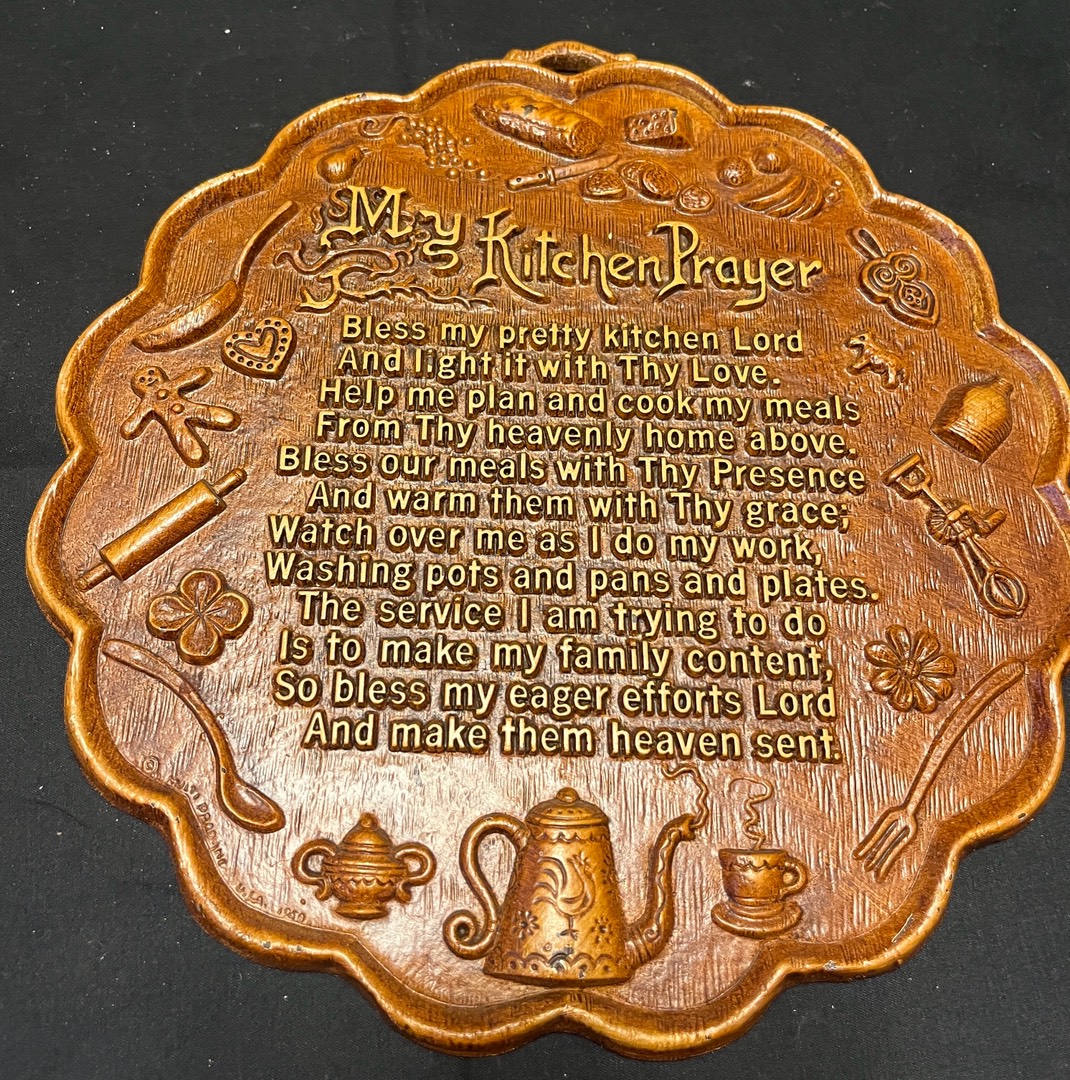 My Kitchen Prayer
Bless my pretty kitchen Lord
And light it with Thy Love.
Help me plan and cook my meals
From Thy heavenly home above.
Bless our meals with Thy Presence
And warm them with Thy grace;
Watch over me as I do my work,
Washing pots and pans and plates.
The service I am trying to do
Is to make my family content,
So bless my eager efforts Lord
And make them heaven sent.
©
INC
U.S.A.